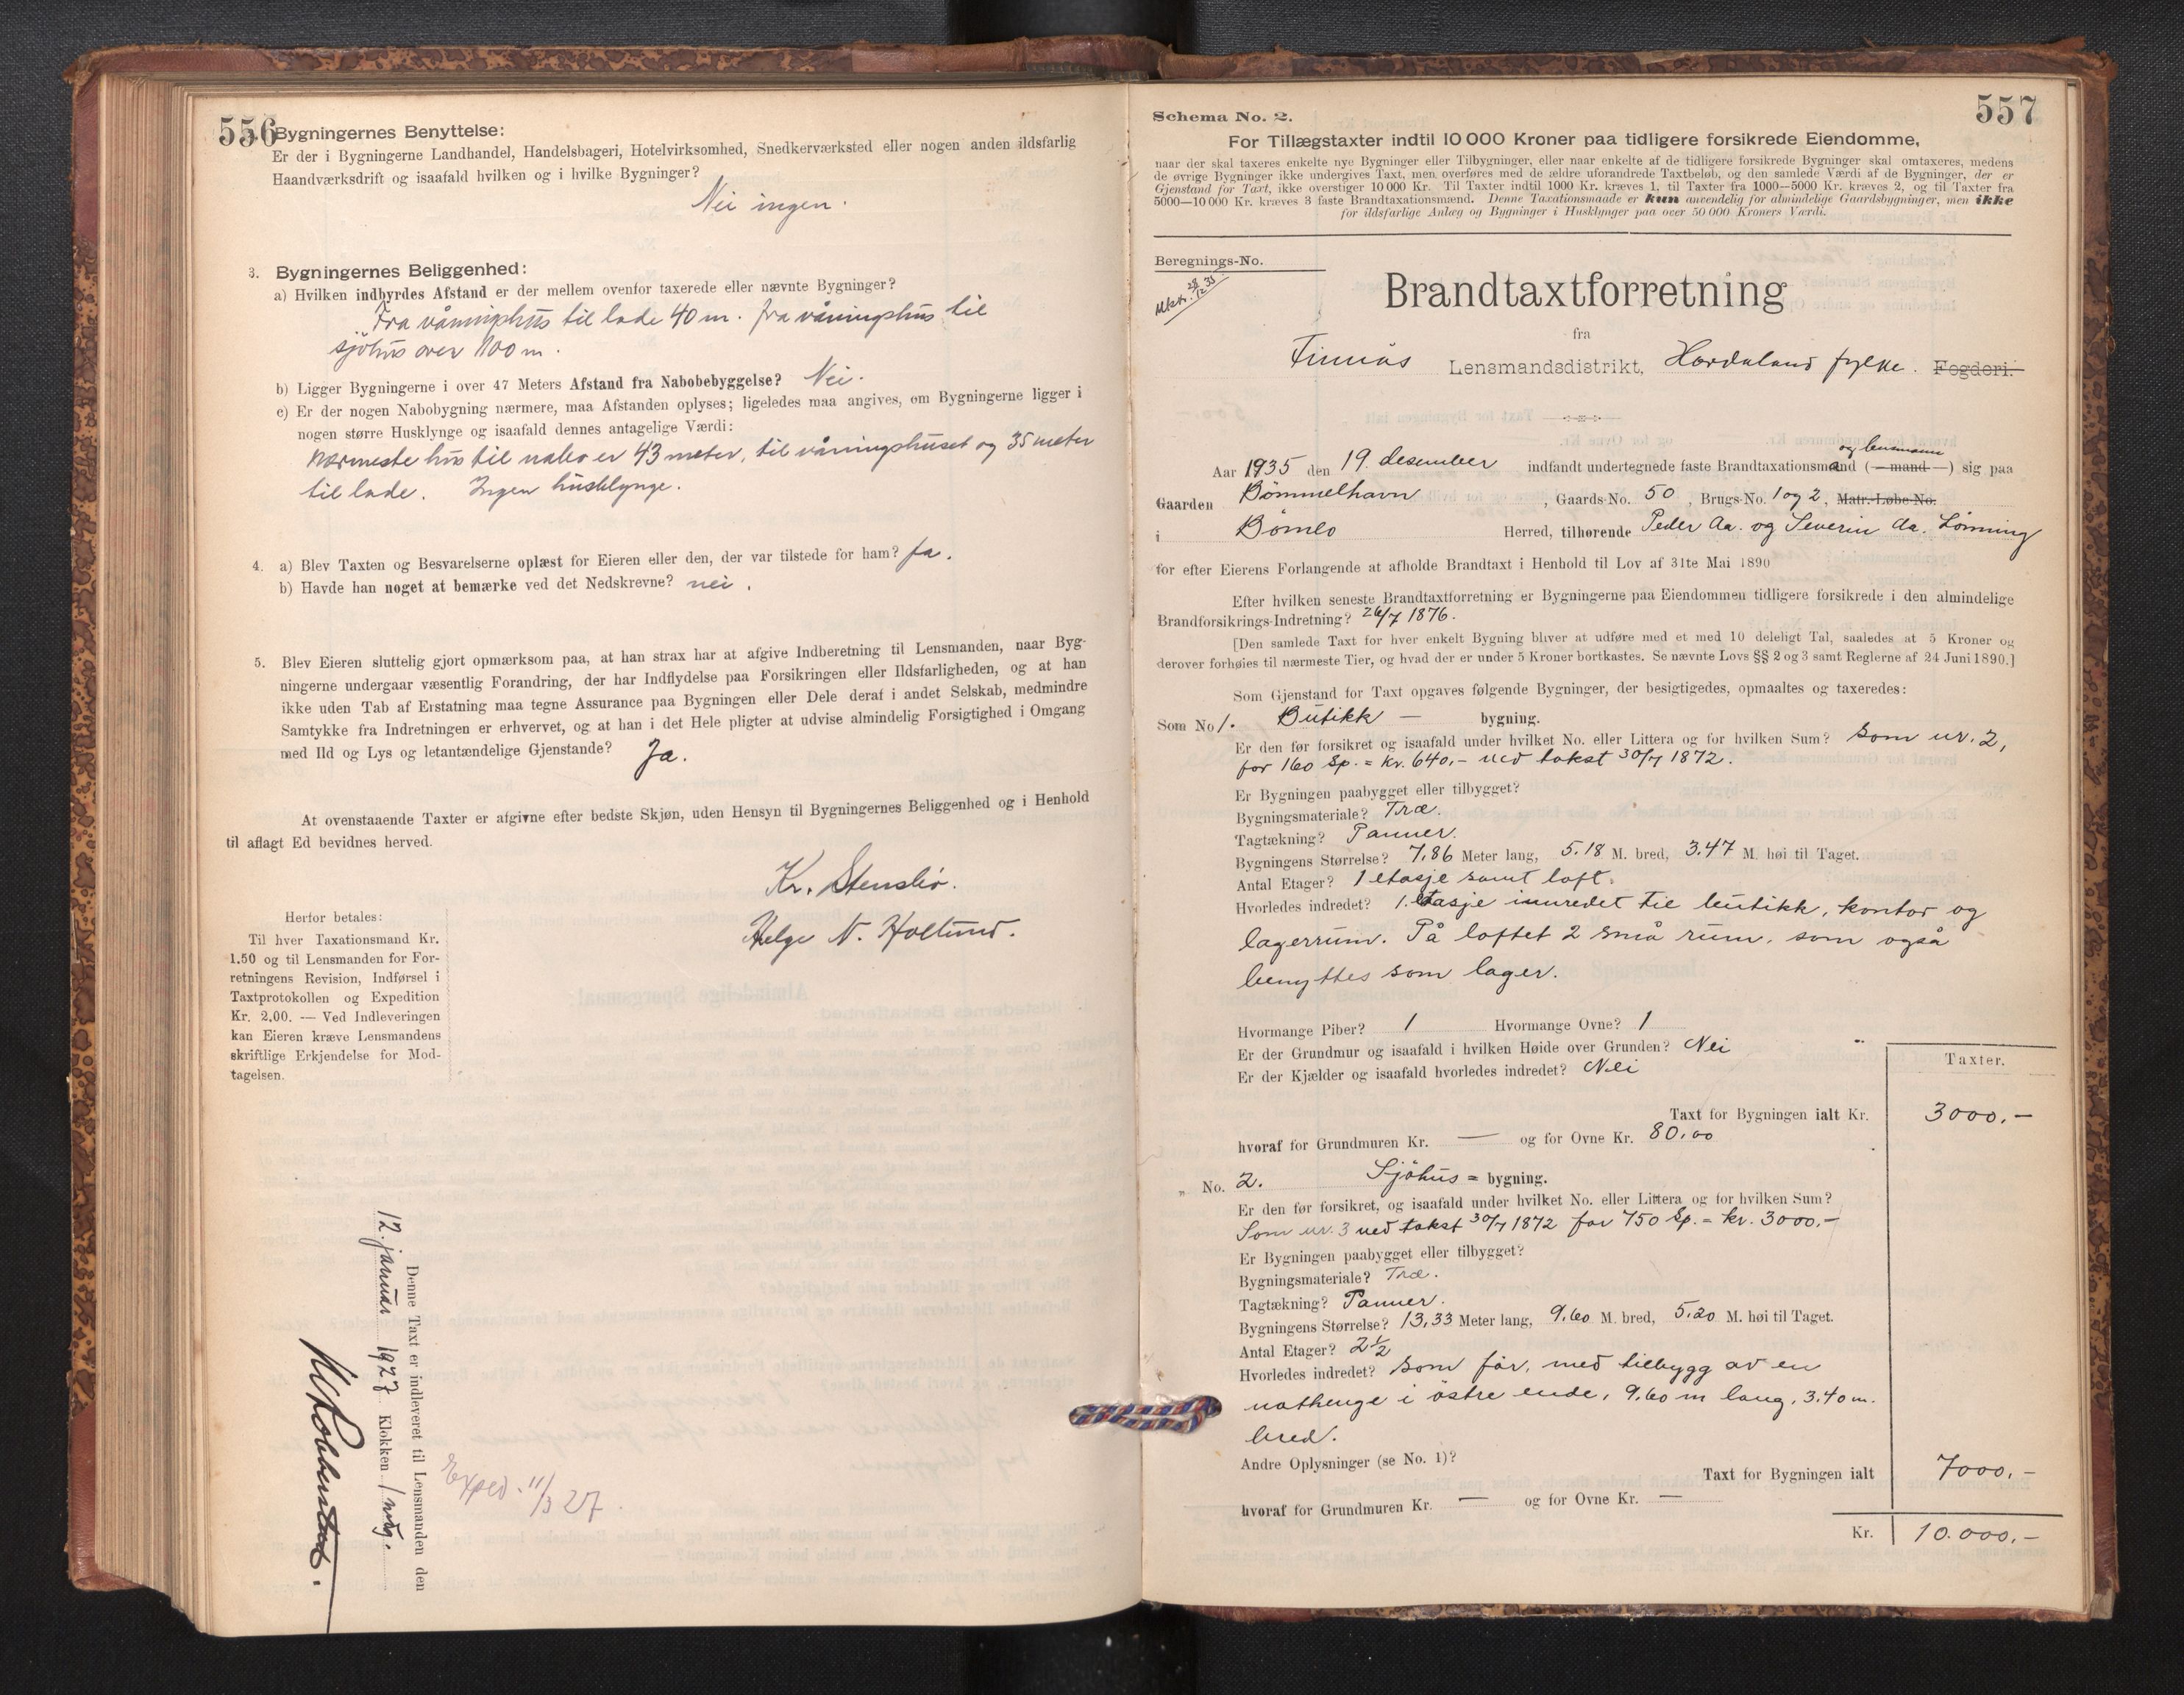 556
Bygningernes Benyttelse:
Er der i Bygningerne Landhandel, Handelsbageri, Hotelvirksomhed, Snedkerværksted eller nogen anden ildsfarlig
Haandværksdrift og isaafald hvilken og i hvilke Bygninger?
Nei ingen.
3. Bygningernes Beliggenhed:
a) Hvilken indbyrdes Afstand er der mellem ovenfor taxerede eller nævnte Bygninger?
Fra våningshus til lade 40 m. fra våningshus til
sjöhus over 100 m.
b) Ligger Bygningerne i over 47 Meters Afstand fra Nabobebyggelse? Nei.
c) Er der nogen Nabobygning nærmere, maa Afstanden oplyses; ligeledes maa angives, om Bygningerne ligger i
nogen større Husklynge og isaafald dennes antagelige Værdi:
Nærmeste hus til nabo er 43 meter, til våningshuset og 35 meter
til lade. Ingen husklynge.
4. a) Blev Taxten og Besvarelserne oplæst for Eieren eller den, der var tilstede for ham? Ja.
b) Havde han noget at bemærke ved det Nedskrevne? nei.
5. Blev Eieren sluttelig gjort opmærksom paa, at han strax har at afgive Indberetning til Lensmanden, naar Byg-
ningerne undergaar væsentlig Forandring, der har Indflydelse paa Forsikringen eller Ildsfarligheden, og at han
ikke uden Tab af Erstatning maa tegne Assurance paa Bygningen eller Dele deraf i andet Selskab, medmindre
Samtykke fra Indretningen er erhvervet, og at han i det Hele pligter at udvise almindelig Forsigtighed i Omgang
med Ild og Lys og letantændelige Gjenstande? Ja.
At ovenstaaende Taxter er afgivne efter bedste Skjøn, uden Hensyn til Bygningernes Beliggenhed og i Henhold
til aflagt Ed bevidnes herved.
Kr. Stensbö.
Helge N. Hollund.
Herfor betales:
Til hver Taxationsmand Kr.
1.50 og til Lensmanden for For-
retningens Revision, Indførsel i
Taxtprotokollen og Expedition
Kr. 2.00. — Ved Indleveringen
kan Eieren kræve Lensmandens
skriftlige Erkjendelse for Mod-
tagelsen.
Denne Taxt er indleveret til Lensmanden den
12. januar 1927 Klokken
Exped. 11/3 27.
557
Schema No. 2.
For Tillægstaxter indtil 10 000 Kroner paa tidligere forsikrede Eiendomme,
naar der skal taxeres enkelte nye Bygninger eller Tilbygninger, eller naar enkelte af de tidligere forsikrede Bygninger skal omtaxeres, medens
de øvrige Bygninger ikke undergives Taxt, men overføres med de ældre uforandrede Taxtbeløb, og den samlede Værdi af de Bygninger, der er
Gjenstand for Taxt, ikke overstiger 10 000 Kr. Til Taxter indtil 1000 Kr. kræves 1, til Taxter fra 1000—5000 Kr. kræves 2, og til Taxter fra
5000—10 000 Kr. kræves 3 faste Brandtaxationsmænd. Denne Taxationsmaade er kun anvendelig for almindelige Gaardsbygninger, men ikke
for ildsfarlige Anlæg og Bygninger i Husklynger paa over 50 000 Kroners Værdi.
Beregnings-No.
Utstr. 28/12 35
Brandtaxtforretning
fra
Finnås Lensmandsdistrikt, Hordaland fylke. Fogderi.
og lensmann
Aar 1935 den 19. desember indfandt undertegnede faste Brandtaxationsmand (—mand—) sig paa
Gaarden Bömmelhavn, Gaards-No. 50, Brugs-No. 1 og 2, Matr.-Løbe-No.
i Bömlo Herred, tilhørende Peder Aa. og Severin Aa. Lönning
for efter Eierens Forlangende at afholde Brandtaxt i Henhold til Lov af 31te Mai 1890
Efter hvilken seneste Brandtaxtforretning er Bygningerne paa Eiendommen tidligere forsikrede i den almindelige
Brandforsikrings-Indretning? 26/7 1876.
[Den samlede Taxt for hver enkelt Bygning bliver at udføre med et med 10 deleligt Tal, saaledes at 5 Kroner og
derover forhøies til nærmeste Tier, og hvad der er under 5 Kroner bortkastes. Se nævnte Lovs §§ 2 og 3 samt Reglerne af 24 Juni 1890.]
Som Gjenstand for Taxt opgaves følgende Bygninger, der besigtigedes, opmaaltes og taxeredes:
Som No 1. Butikk — bygning.
Er den før forsikret og isaafald under hvilket No. eller Littera og for hvilken Sum? Som nr. 2,
for 160 Sp. = kr. 640,- ved takst 30/7 1872.
Er Bygningen paabygget eller tilbygget?
Bygningsmateriale? Træ.
Tagtækning? Panner.
Bygningens Størrelse? 7,86 Meter lang, 5.18 M. bred, 3.47 M. høi til Taget.
Antal Etager? 1 etasje samt loft.
Hvorledes indredet? 1. etasje innredet til butikk, kontor og
lagerrum. På loftet 2 små rum, som også
benyttes som lager.
Hvormange Piber? 1 Hvormange Ovne? 1
Er der Grundmur og isaafald i hvilken Høide over Grunden? Nei
Er der Kjælder og isaafald hvorledes indredet? Nei
Taxter.
Taxt for Bygningen ialt Kr. 3000.-
hvoraf for Grundmuren Kr. — og for Ovne Kr. 80.00
„ No. 2. Sjöhus = bygning.
Er den før forsikret, og isaafald under hvilket No. eller Littera og for hvilken Sum?
Som nr. 3 ved takst 30/7 1872 for 750 Sp. = kr. 3000.-
Er Bygningen paabygget eller tilbygget?
Bygningsmateriale? Træ.
Tagtækning? Panner.
Bygningens Størrelse? 13,33 Meter lang, 9,60 M. bred, 5.20 M. høi til Taget.
Antal Etager? 2½
Hvorledes indredet? Som för, med tilbygg av en
nothenge i östre ende, 9.60 m lang, 3.40 m.
bred.
Andre Oplysninger (se No. 1)?
Taxt for Bygningen ialt 7000.-
hvoraf for Grundmuren Kr. — og for Ovne Kr. —
Kr. 10.000.-